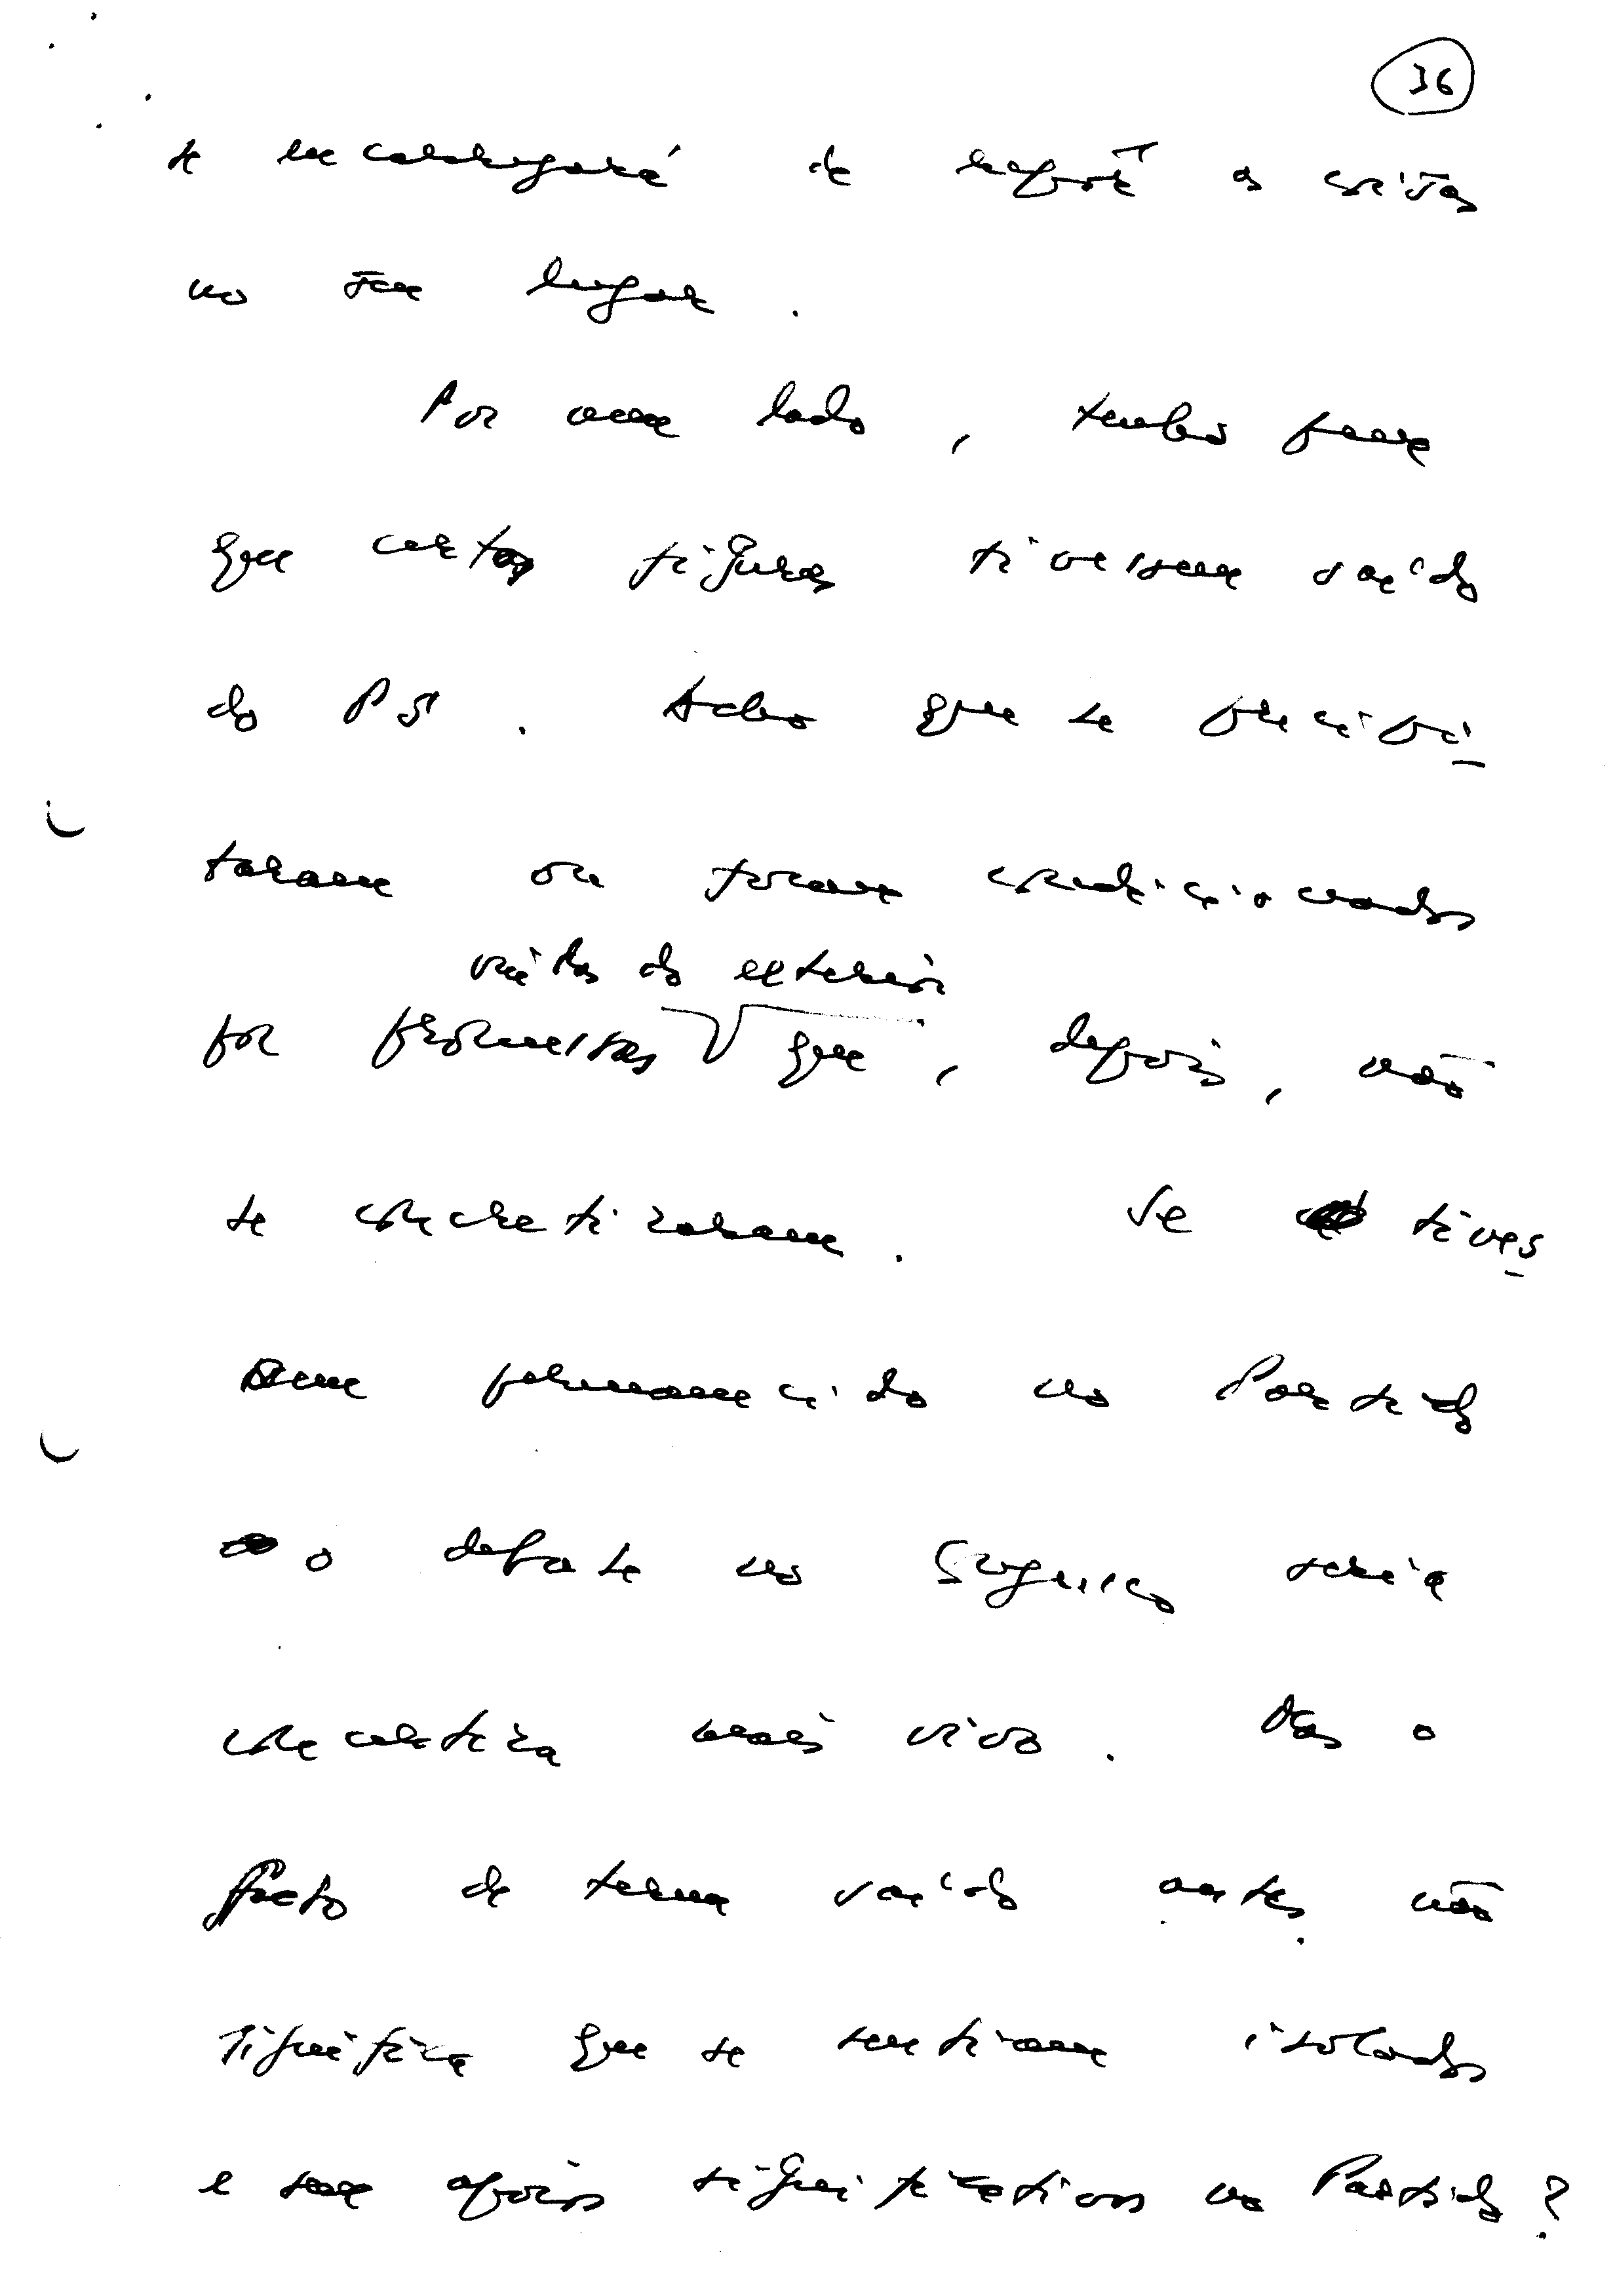 36
se encarregará de repôr as coisas
no seu lugar.
Por um lado, tenho pena
que certas figuras tivessem saído
do PS. Acho que se precipi-
taram ou foram condicionados
vindas do exterior
por promessas que, depois, não
se concretizaram. Se tives-
sem permanecido no Partido
o debate no Congresso seria
mais vivo. Mas o
facto de terem saído antes não
significa que se sentiam isolados
e sem apoios significativos no Partido?